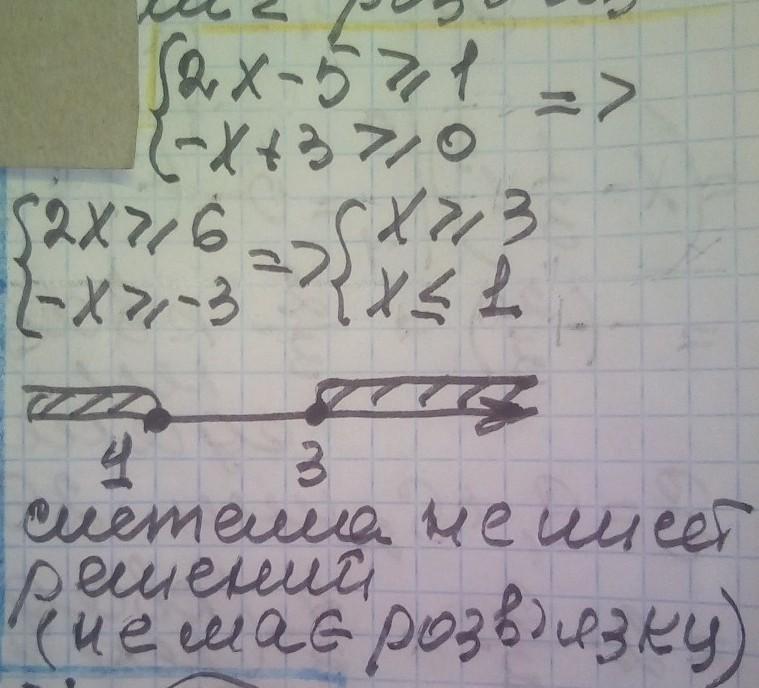 {2x-5⩾1
{-x+3⩾0 =>
{2x⩾6
{-x⩾-3 => {x⩾3
{x≤1
1 3
система не имеет
решений
(немає розв'язку)